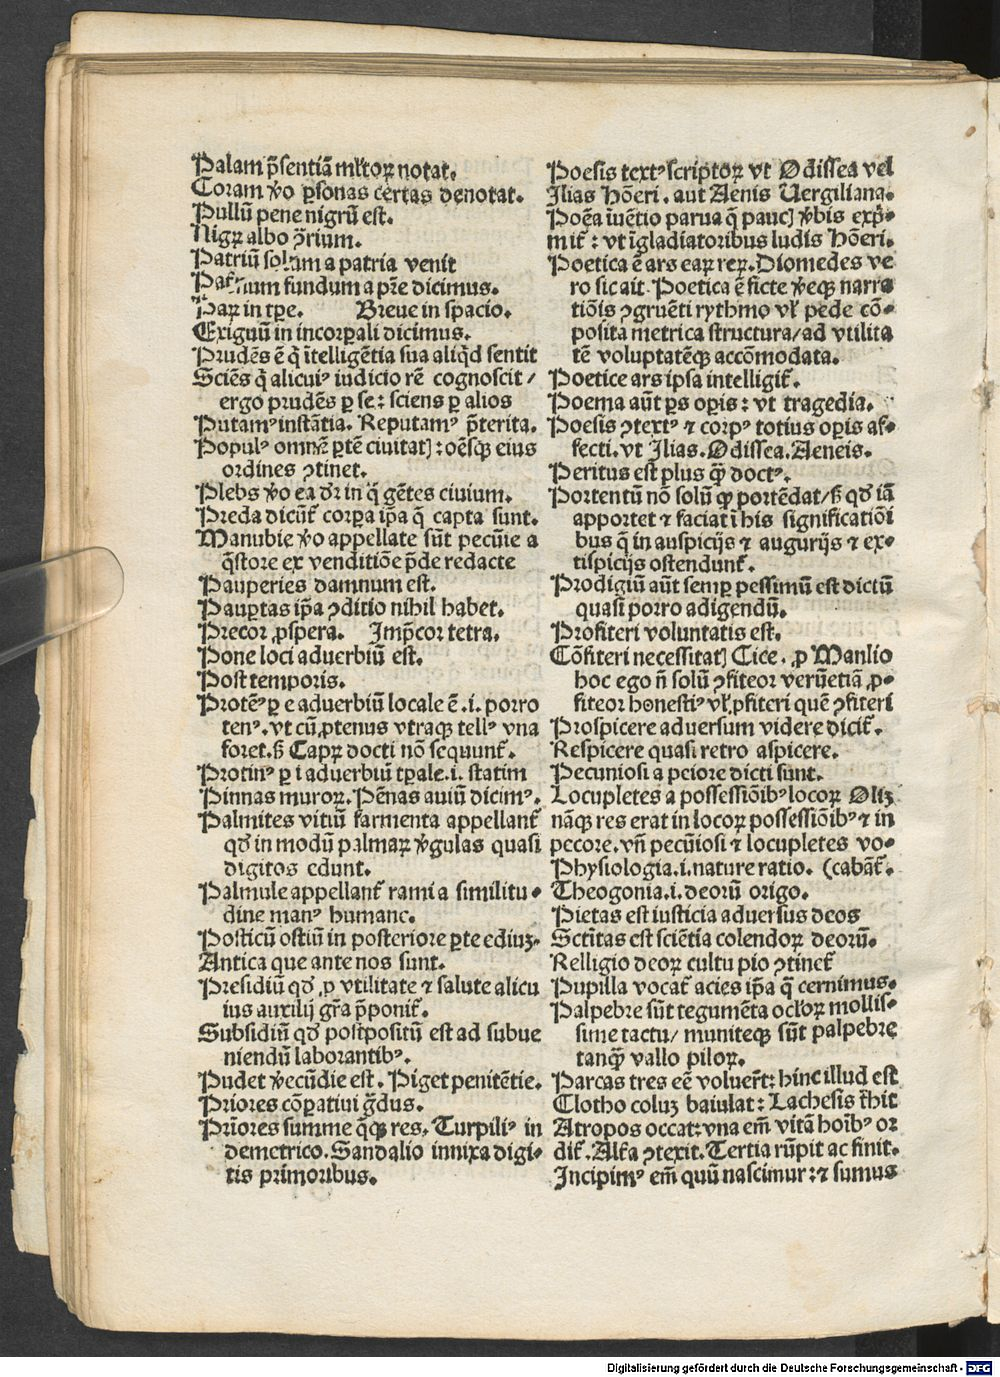 Palam p̄sentiā mꝉtoꝝ notat.
Coram ꝟo ꝑsonas certas denotat.
Pullū pene nigrū est.
Nigꝝ albo ꝯ̄rium.
Patriū solum a patria venit
Paternum fundum a pr̄e dicimus.
Paꝝ in tꝑe. Breue in spacio.
Exiguū in incorꝑali dicimus.
Prudēs ē q̄ ītelligētia sua aliq̄d sentit
Sciēs q̄ alicuiꝰ iudicio rē cognoscit /
ergo prudēs ꝑ se: sciens ꝑ alios
Putamꝰ instātia. Reputamꝰ p̄terita.
Populꝰ omnē ꝑtē ciuitatꝭ: oēsqꝫ eius
ordines ꝯtinet.
Plebs ꝟo ea dr̄ in q̄ gētes ciuium.
Preda dicūt᷑ corꝑa ip̄a q̄ capta sunt.
Manubie ꝟo appellate sūt pecūie a
q̄store ex venditiōe p̄de redacte
Pauperies damnum est.
Pauꝑtas ip̄a ꝯditio nihil habet.
Precor ꝓspera. Imp̄cor tetra.
Pone loci aduerbiū est.
Post temporis.
Protēꝰ ꝑ e aduerbiū locale ē .i. porro
tenꝰ. vt cū ꝓtenus vtraqꝫ tellꝰ vna
foret. ẞ Caꝑꝝ docti nō sequunt᷑.
Protinꝰ ꝑ i aduerbiū tꝑale .i. statim
Pinnas muroꝝ. Pēnas auiū dicimꝰ.
Palmites vitiū sarmenta appellant᷑
qd̄ in modū palmaꝝ ꝟgulas quasi
digitos edunt.
Palmule appellant᷑ rami a similitu⸗
dine manꝰ humane.
Posticū ostiū in posteriore ꝑte ediuꝫ.
Antica que ante nos sunt.
Presidiū qd̄ ꝓ vtilitate ⁊ salute alicu
ius auxilij gr̄a p̄ponit᷑.
Subsidiū qd̄ postpositū est ad subue
niendū laborantibꝰ.
Pudet ꝟecūdie est. Piget penitētie.
Priores cōꝑatiui ḡdus.
Prīores summe q̄qꝫ res. Turpiliꝰ in
demetrico. Sandalio innixa digi⸗
tis primoribus.
Poesis textꝰ scriptoꝝ vt Odissea vel
Ilias Hōeri. aut Aenis Uergiliana.
Poēa īuētio parua q̄ paucꝭ ꝟbis exp̄⸗
mit᷑: vt ī gladiatoribus ludis Hōeri.
Poetica ē ars eaꝝ reꝝ. Diomedes ve
ro sic ait. Poetica ē ficte ꝟeqꝫ narra
tiōis ꝯgruēti rythmo vꝉ pede cō⸗
posita metrica structura/ad vtilita
tē voluptatēqꝫ accōmodata.
Poetice ars ipsa intelligit᷑.
Poema aūt ꝑs oꝑis: vt tragedia.
Poesis ꝯtextꝰ ⁊ corpꝰ totius oꝑis af⸗
fecti. vt Ilias. Odissea. Aeneis.
Peritus est plus q̄ꝫ doctꝰ.
Portentū nō solū qꝫ portēdat/ẞ qd̄ iā
apportet ⁊ faciat ī his significatiōi
bus q̄ in auspicijs ⁊ augurijs ⁊ ex⸗
tispicijs ostendunt᷑.
Prodigiū aūt semꝑ pessimū est dictū
quasi porro adigendū.
Profiteri voluntatis est.
Cōfiteri necessitatꝭ Cice. ꝓ Manlio
hoc ego n̄ solū ꝯfiteor verūetiā ꝓ⸗
fiteor honestiꝰ vꝉ ꝓfiteri quē ꝯfiteri
Prospicere aduersum videre dicit᷑.
Respicere quasi retro aspicere.
Pecuniosi a pciore dicti sunt.
Locupletes a possessiōibꝰ locoꝝ Oliꝫ
nāqꝫ res erat in locoꝝ possessiōibꝰ ⁊ in
pecore. vn̄ pecūiosi ⁊ locupletes vo⸗
Physiologia .i. nature ratio. (cabāt᷑.
Theogonia .i. deorū origo.
Pietas est iusticia aduersus deos
Sct̄itas est sciētia colendoꝝ deorū.
Relligio deoꝝ cultu pio ꝯtinet᷑
Pupilla vocat᷑ acies ip̄a q̄ cernimus.
Palpebre sūt tegumēta ocꝉoꝝ mollis⸗
sime tactu/ muniteqꝫ sūt palpebrę
tanq̄ꝫ vallo piloꝝ.
Parcas tres eē voluer̄t: hinc illud est
Clotho coluꝫ baiulat: Lachesis t᷑hit
Atropos occat: vna em̄ vitā hoībꝰ or
dit᷑. Alt᷑a ꝯtexit. Tertia rūpit ac finit.
Incipimꝰ em̄ quū nascimur: ⁊ sumus
Digitalisierung gefördert durch die Deutsche Forschungsgemeinschaft - DFG